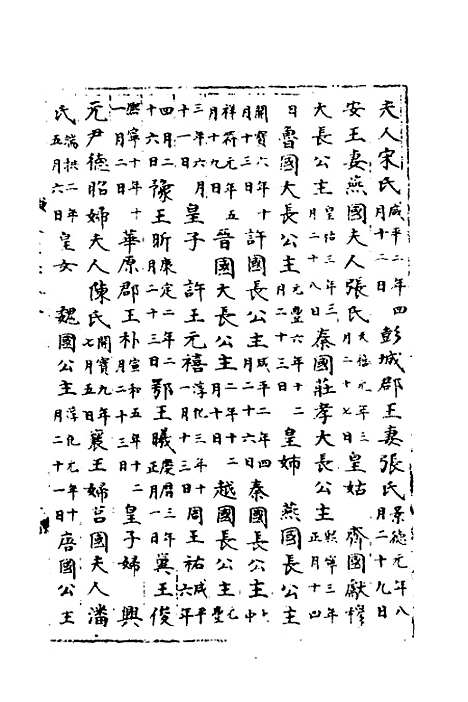 夫人宋氏咸平二年四月十二日彭城郡王妻張氏景德元年八月二十九日
安王妻燕國夫人張氏天禧元年三月二十七日皇姑　齊國獻穆
大長公主皇祐三年三月二十八日秦國莊孝大長公主熙寧三年正月十四
日魯國大長公主元豐六年十二月二十三日皇姊　燕國長公主
開寶六年十月十三日許國長公主咸平二年四月二十六日秦國長公主大中
祥符元年五月十九日晉國大長公主二年十二月十日越國長公主元豐
三年六月十一日皇子　許王元禧淳化三年十一月十日周王祐咸平六年
四月二十六日豫王昕康定二年二月二十三日鄂王曦慶曆三年正月一日冀王俊
熙寧十年十一月二日華原郡王朴宣和五年十二月二十三日皇子婦　興
元尹德昭婦夫人陳氏開寶九年七月五日襄王婦莒國夫人潘
氏端拱二年五月六日皇女　魏國公主淳化元年十月二十一日唐國公主